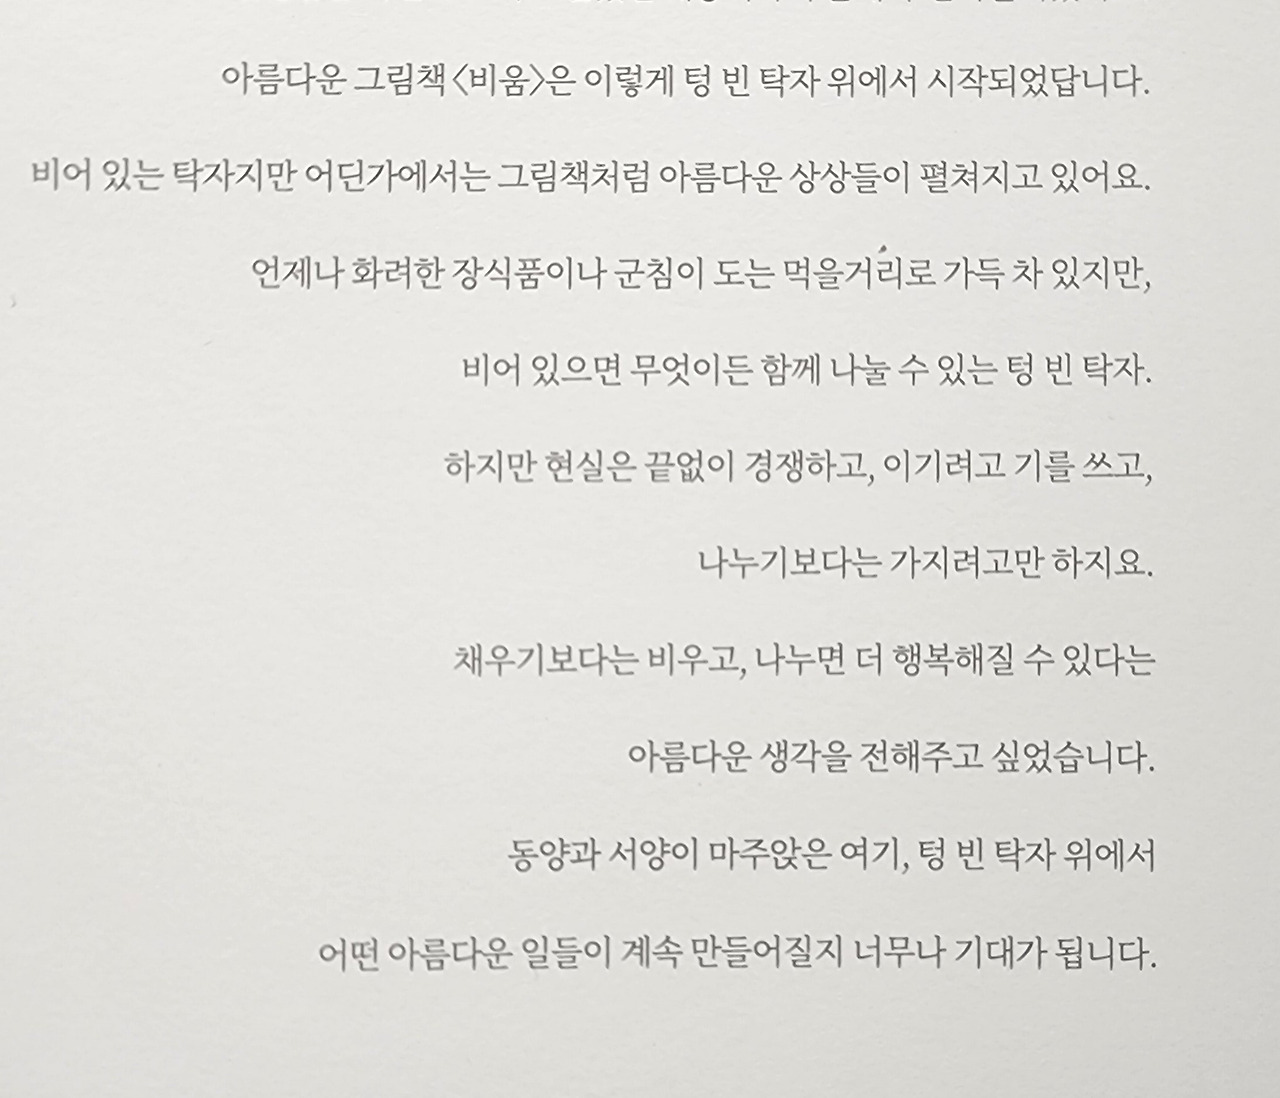 아름다운 그림책 〈비움〉은 이렇게 텅 빈 탁자 위에서 시작되었답니다.
비어 있는 탁자지만 어딘가에서는 그림책처럼 아름다운 상상들이 펼쳐지고 있어요.
언제나 화려한 장식품이나 군침이 도는 먹을거리로 가득 차 있지만,
비어 있으면 무엇이든 함께 나눌 수 있는 텅 빈 탁자.
하지만 현실은 끝없이 경쟁하고, 이기려고 기를 쓰고,
나누기보다는 가지려고만 하지요.
채우기보다는 비우고, 나누면 더 행복해질 수 있다는
아름다운 생각을 전해주고 싶었습니다.
동양과 서양이 마주앉은 여기, 텅 빈 탁자 위에서
어떤 아름다운 일들이 계속 만들어질지 너무나 기대가 됩니다.